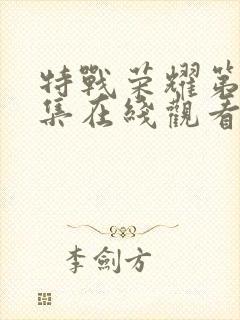 特戰荣耀第
集在綫觀看
李劍方